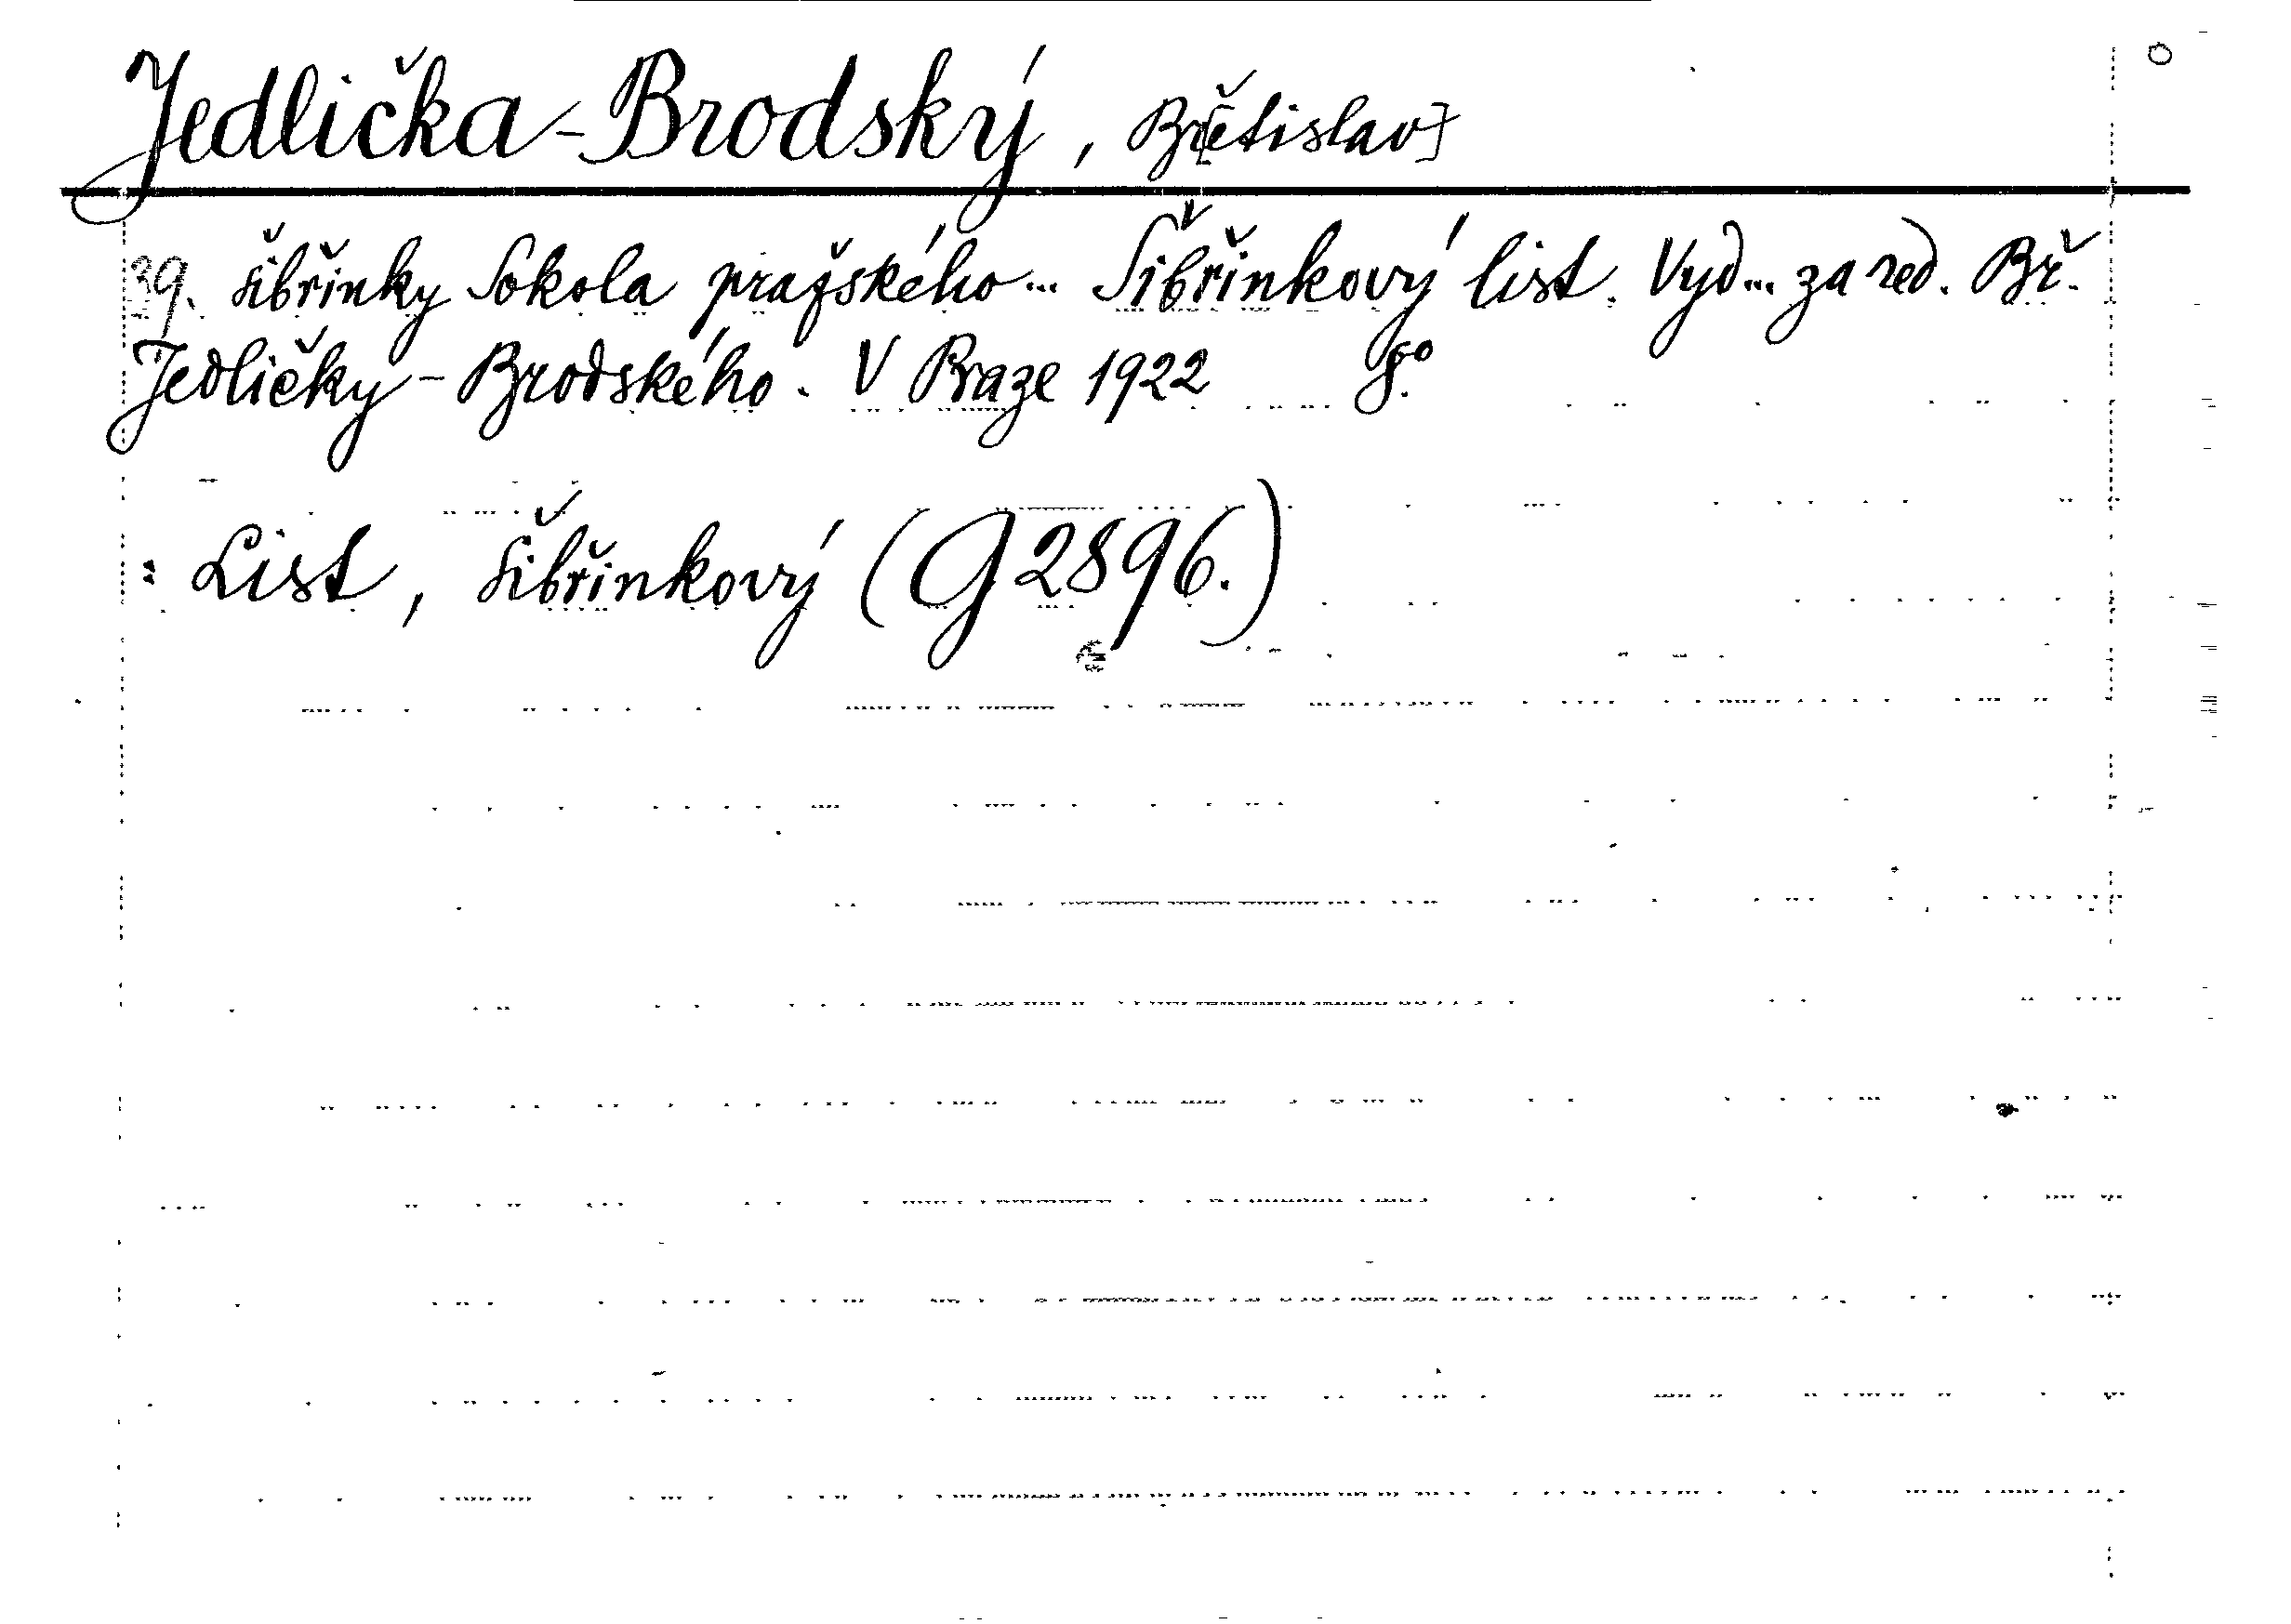 Jedlička-Brodský, Bř[etislav]
39. šibřinky Sokola pražského... Šibřinkový list. Vyd... za red. Bř.
Jedličky-Brodského. V Praze 1922 8°.
: List, šibřinkový (G 2896.)